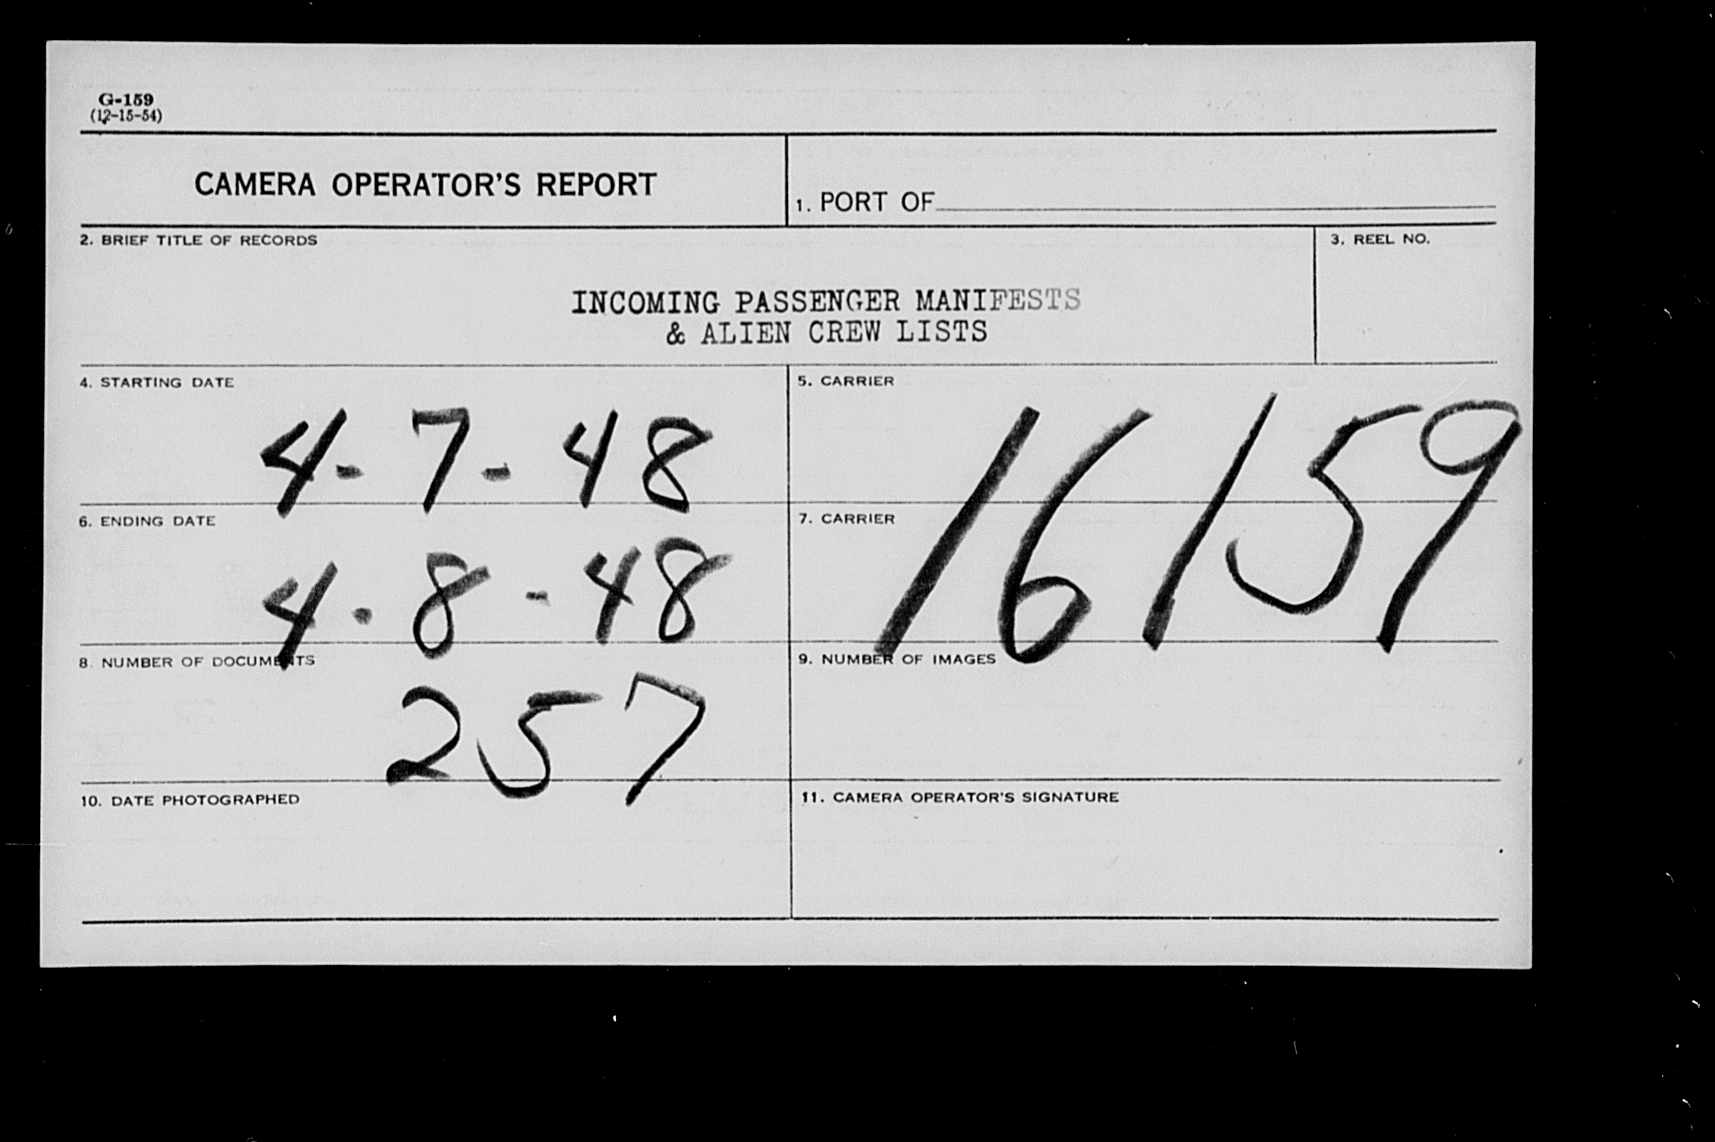 G-159
(12-15-54)
CAMERA OPERATOR'S REPORT
1. PORT OF
2. BRIEF TITLE OF RECORDS
3. REEL NO.
INCOMING PASSENGER MANIFESTS
& ALIEN CREW LISTS
4. STARTING DATE
4-7-48
5. CARRIER
16159
6. ENDING DATE
4-8-48
7. CARRIER
8. NUMBER OF DOCUMENTS
257
9. NUMBER OF IMAGES
10. DATE PHOTOGRAPHED
11. CAMERA OPERATOR'S SIGNATURE